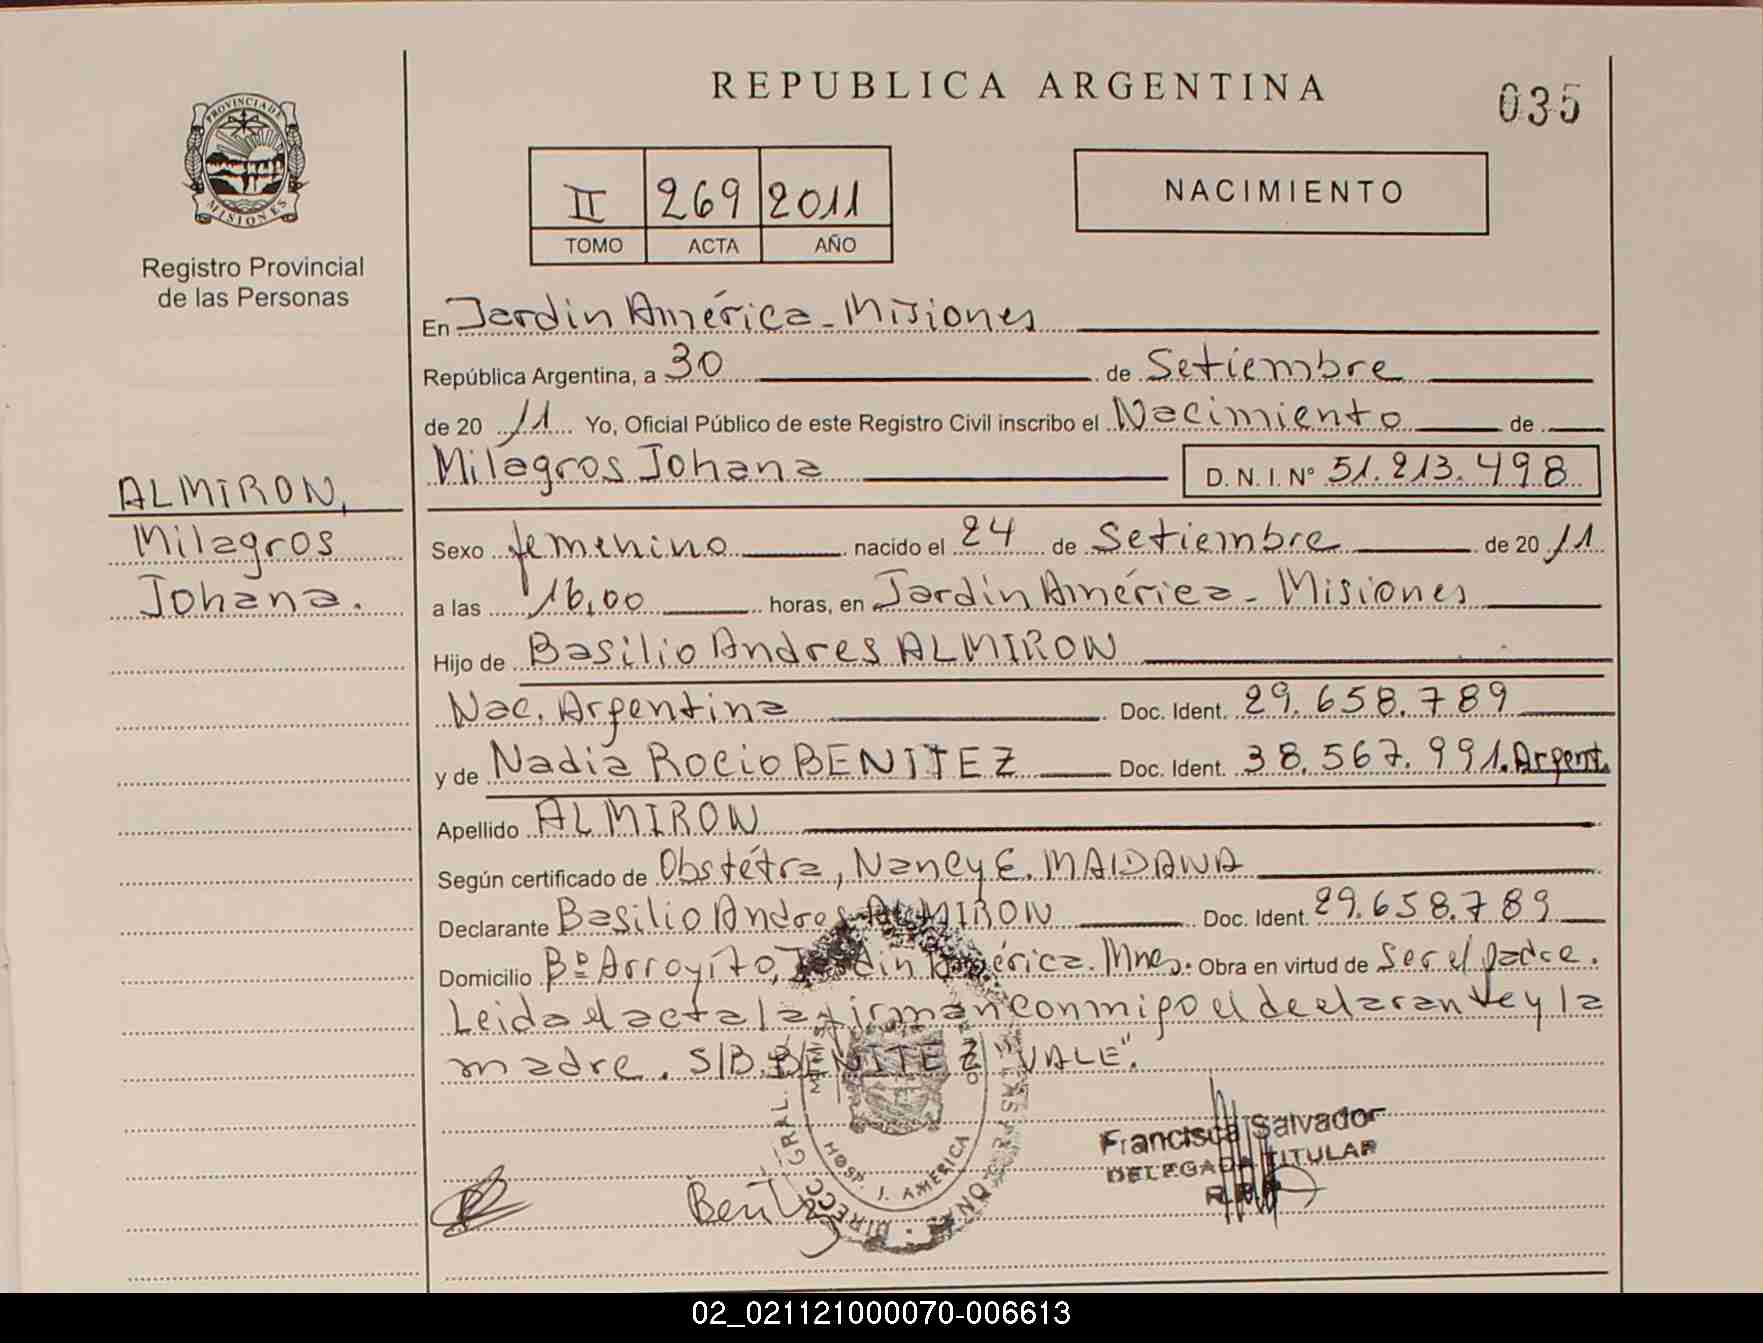 REPUBLICA ARGENTINA
035
PROVINCIA DE
MISIONES
Registro Provincial
de las Personas
II 269 2011
TOMO ACTA AÑO
NACIMIENTO
En Jardin América - Misiones
República Argentina, a 30 de Setiembre
de 20 11 Yo, Oficial Público de este Registro Civil inscribo el Nacimiento de
Milagros Johana D. N. I. N° 51.213.498
ALMIRON,
Milagros
Johana.
Sexo femenino nacido el 24 de Setiembre de 20 11
a las 16,00 horas, en Jardín América - Misiones
Hijo de Basilio Andres ALMIRON
Nac. Argentina Doc. Ident. 29.658.789
y de Nadia Rocio BENITEZ Doc. Ident. 38.567.991. Argent.
Apellido ALMIRON
Según certificado de Obstétra, Nancy E. MAIDANA
Declarante Basilio Andres ALMIRON Doc. Ident. 29.658.789
Domicilio Bº Arroyito, Jardin América. Mnes. Obra en virtud de Ser el padre.
Leida el acta la firman conmigo el declarante y la
madre. S/B. BENITEZ "VALE".
Francisca Salvador
DELEGADA TITULAR
R.P.P
Benitez
DIRECC. GRAL.
HOSP. J. AMERICA
02_021121000070-006613